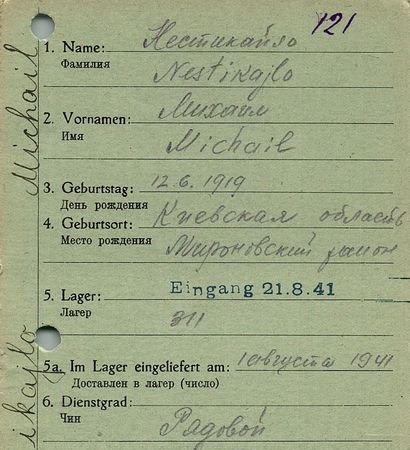 121
1. Name: Нестикайло
Фамилия
Nestikajlo
2. Vornamen: Михаил
Имя
Michail
3. Geburtstag: 12.6.1919
День рождения
4. Geburtsort: Киевская область
Место рождения
Мироновский район
5. Lager: Eingang 21.8.41
Лагер
311
5a. Im Lager eingeliefert am: 1 августа 1941
Доставлен в лагер (число)
6. Dienstgrad:
Чин
Рядовой
Michail
ikajlo